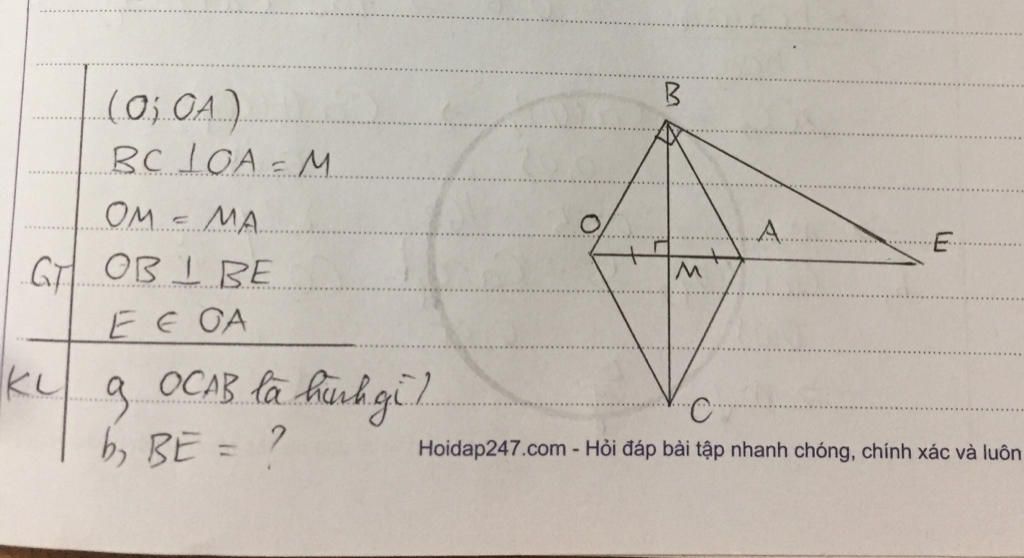 (O; OA)
BC ⊥ OA = M
OM = MA
GT OB ⊥ BE
E ∈ OA
KL a, OCAB là hình gì?
b, BE = ?
B
O
A
E
M
C
Hoidap247.com - Hỏi đáp bài tập nhanh chóng, chính xác và luôn